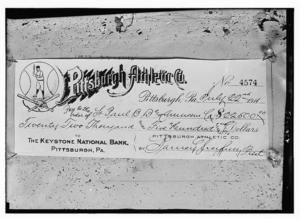 Pittsburgh Athletic Co.
No. 4574
Pittsburgh, Pa. July 22nd 1911
Pay to the
order of St Paul B B $22500.00
Twenty Two Thousand Five Hundred Dollars
TO PITTSBURGH ATHLETIC CO.
THE KEYSTONE NATIONAL BANK,
PITTSBURGH, PA. Barney Dreyfuss Prest